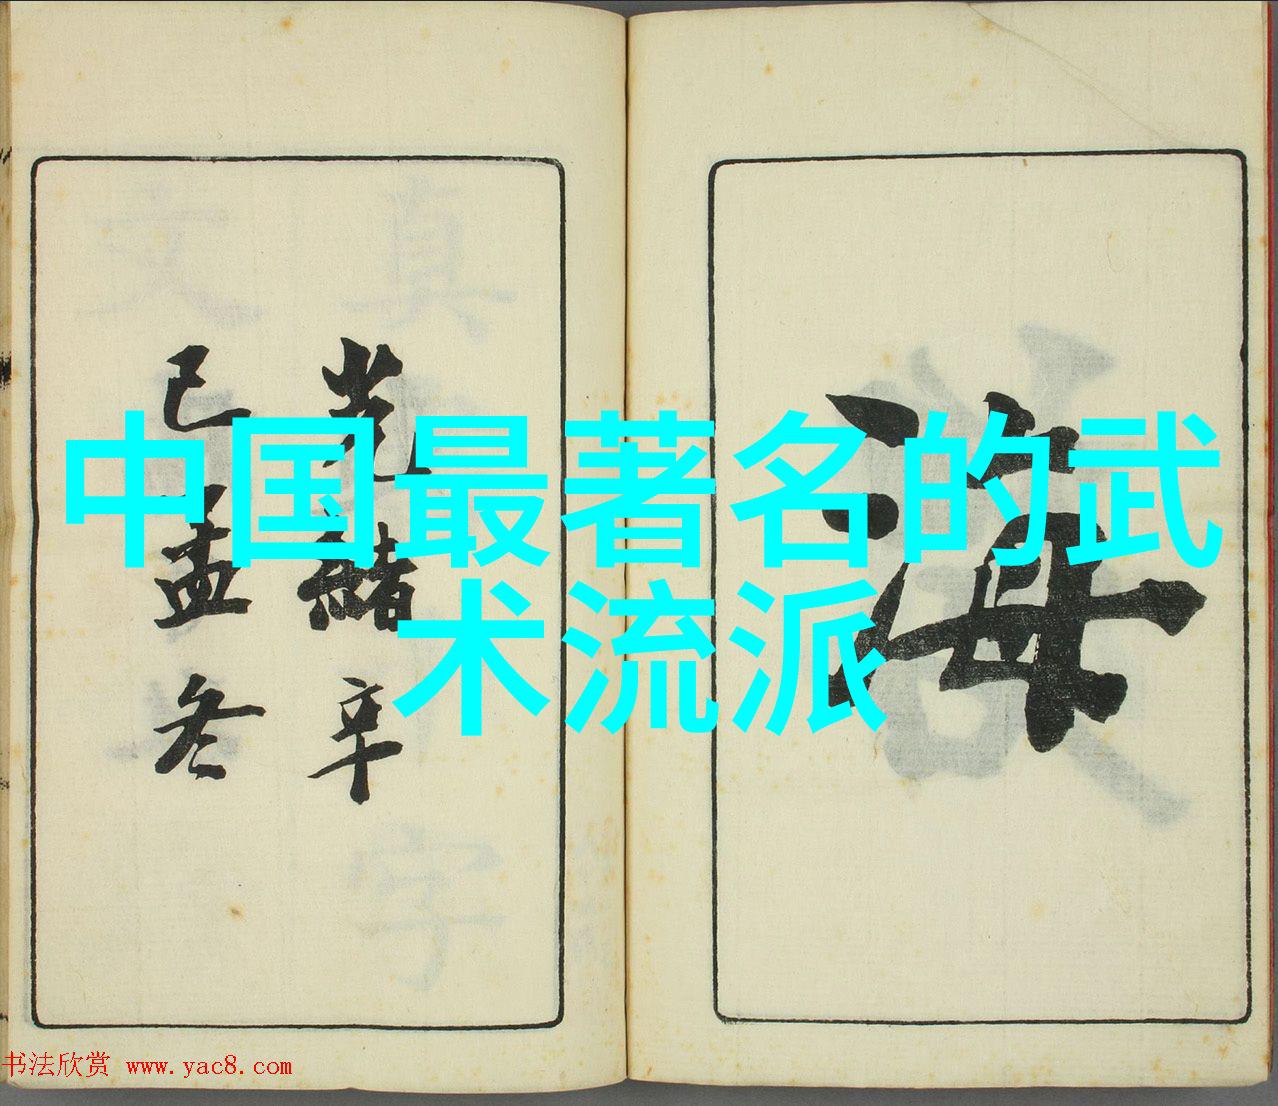 中国最著名的武
术流派
海
光緒辛
巳孟冬
书法欣赏 www.yac8.com